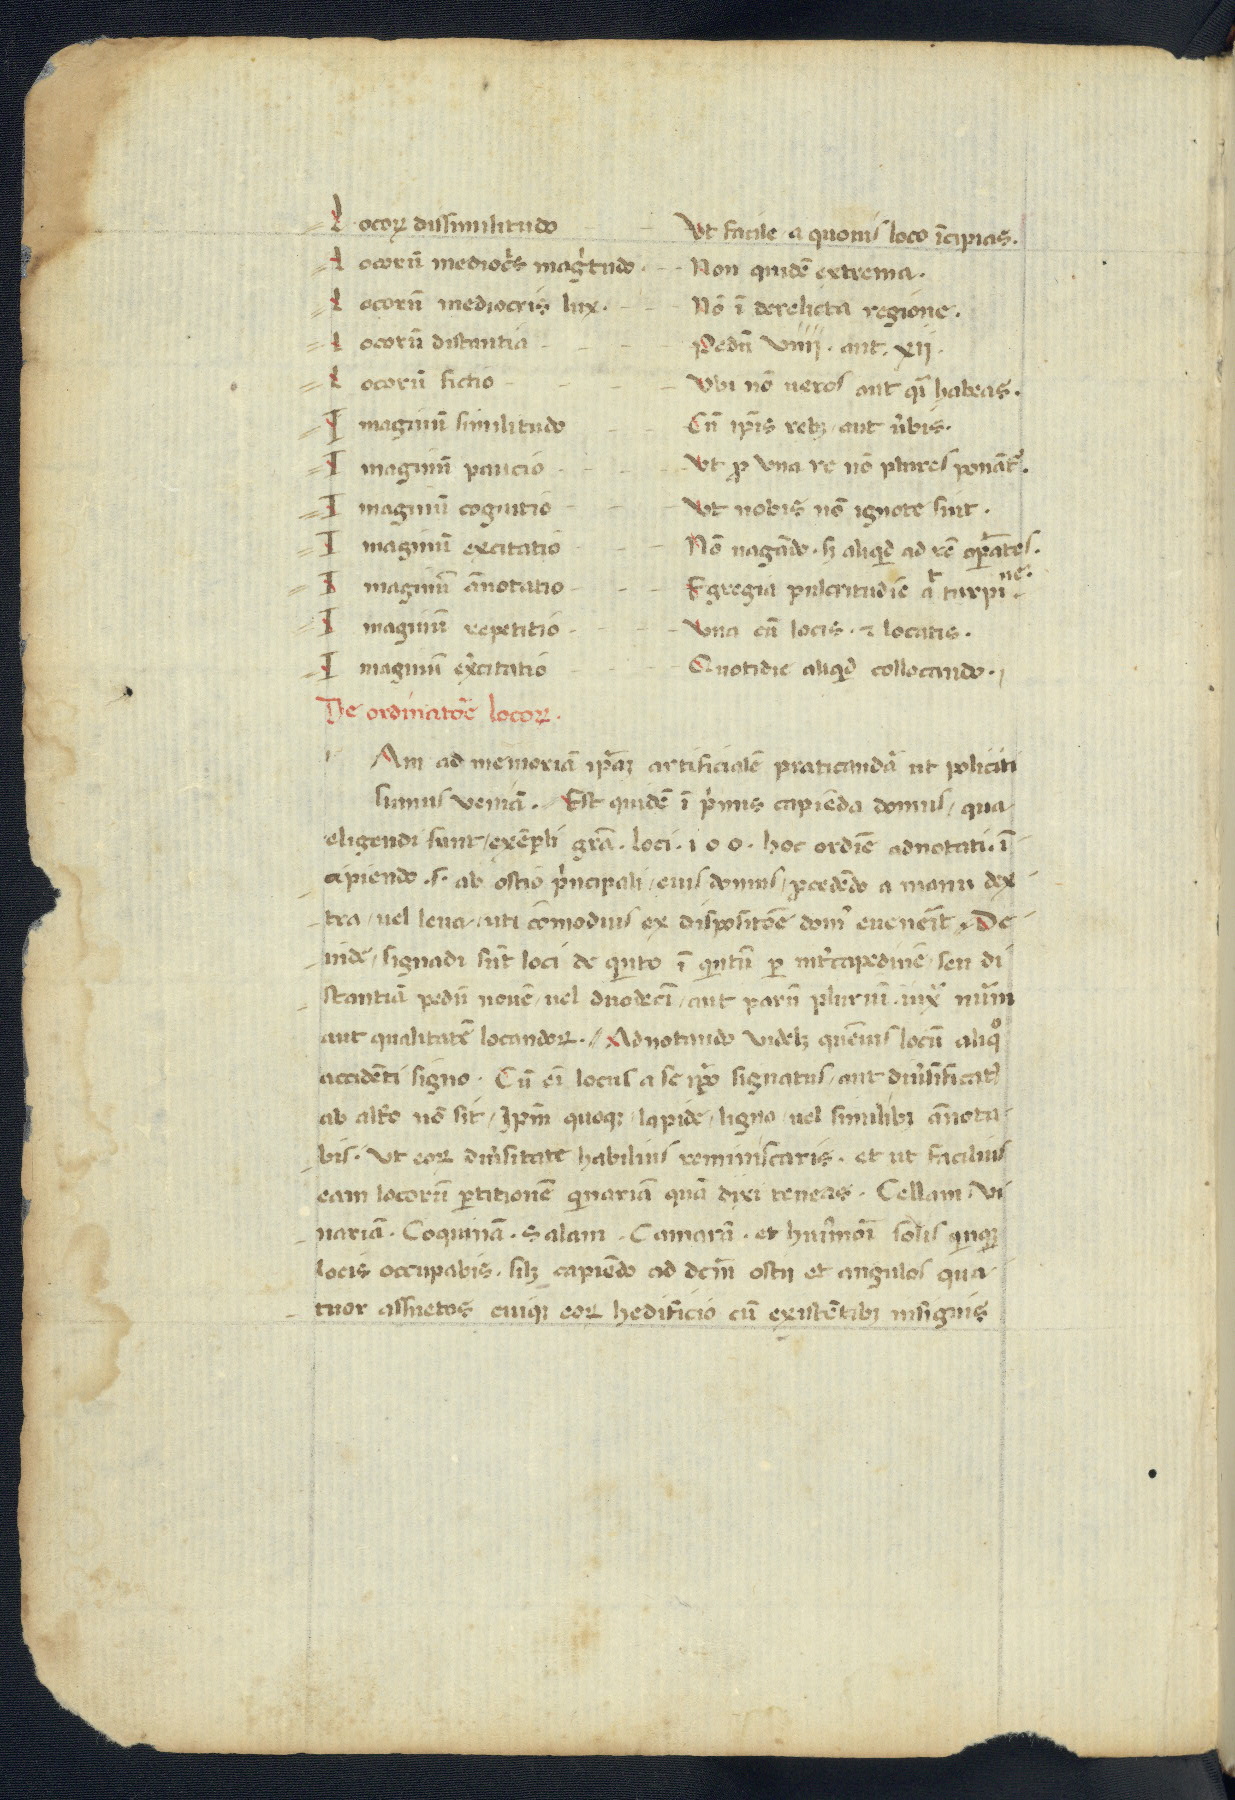 Locoꝝ dissimilitudo - - Vt facile a quouis loco īcipias.
Locorū mediocͥs magͥtudo. - - Non quidē extrema.
Locorū mediocris lux. - - Nō ī derelicta regione.
Locorū distantia - - - Pedū viiij. aut. xij.
Locorū fictio - - - Vbi nō ueros aut qͥ habeas.
Imaginū similitudo - - Cū ip̄is rebꝫ aut ūbis.
Imaginū paucio - - - Vt ꝓ vna re nō plures ponāt᷑.
Imaginū cognitio - - - Vt nobis nō ignote sint.
Imaginū excitatio - - Nō uagādo. sꝫ aliqͥd ad rē opātes.
Imaginū ānotatio - - - Egregia pulcritudīe aͭ turpine.
Imaginū repetitio - - - Vna cū locis. ⁊ locatis.
Imaginū ex̄citatio - - - Quotidie aliqͥd collocando.
De ordinatōe locoꝝ.
Am ad memoriā ip̄aꝫ artificialē praticandā ut policiti
sumus veniā. Est quidē ī pͥmis capiēda domus, qua
eligendi sunt, exēpli grā. loci. 100. hoc ordīe adnotati. ī
cipiendo .s. ab ostio pͥncipali, eius domus, ꝓcedēdo a manu dex
tra, uel leua, uti cōmodius ex dispositōe domꝰ euenēit. De
inde, signādi sūt loci de qͥnto ī qͥntū ꝑ intͥcapedinē, seu di
stantiā pedū nouē, uel duodecī, aut parū plurīū. iuxͣ nūm
aut qualitatē locandoꝝ. Adnotando videlꝫ quēuis locū aliqͦ
accidēti signo. Cū eī locus a se ip̄o signatus, aut diūsificatꝰ
ab altͦo nō sit, Ip̄m quoqꝫ lapide, ligno, uel similibꝫ ānota
bis. Vt eoꝝ diūsitate habilius reminiscaris. et ut facilius
eam locorū ꝑtitionē qͥnariā quā dixi teneas. Cellam vi
nariā. Coquinā. Salam. Camarā. et huiͨmōi solis qͥnqꝫ
locis occupabis. silꝫ capiēdo ad dc̄m ostij et angulos qua
tuor assuetos cuiqꝫ eoꝝ hedificio cū existētibꝫ insignis